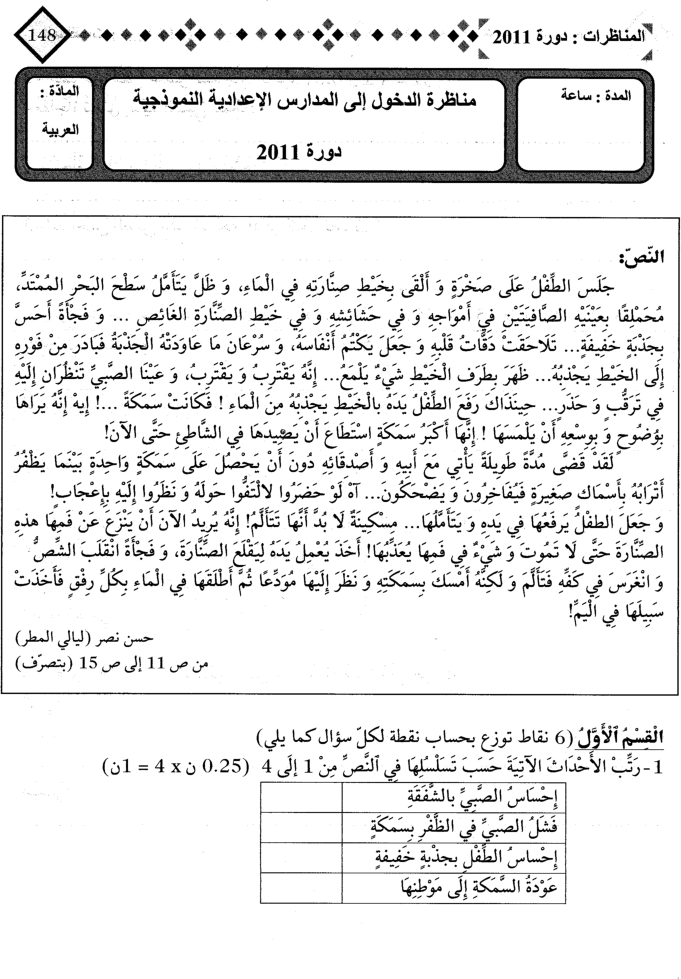 المناظرات : دورة 2011
148
المدة : ساعة
مناظرة الدخول إلى المدارس الإعدادية النموذجية
دورة 2011
المادّة :
العربية
النّصّ:
جَلَسَ الطِّفْلُ عَلَى صَخْرَةٍ وَ أَلْقَى بِخَيْطِ صِنَّارَتِهِ فِي الْمَاءِ، وَ ظَلَّ يَتَأَمَّلُ سَطْحَ البَحْرِ المُمْتَدِّ،
مُحَمْلِقًا بِعَيْنَيْهِ الصَّافِيَتَيْنِ فِي أَمْوَاجِهِ وَ فِي حَشَائِشِهِ وَ فِي خَيْطِ الصِّنَّارَةِ الغَائِصِ ... وَ فَجْأَةً أَحَسَّ
بِجَذْبَةٍ خَفِيفَةٍ... تَلَاحَقَتْ دَقَّاتُ قَلْبِهِ وَ جَعَلَ يَكْتُمُ أَنْفَاسَهُ، وَ سُرْعَانَ مَا عَاوَدَتْهُ الْجَذْبَةُ فَبَادَرَ مِنْ فَوْرِهِ
إِلَى الخَيْطِ يَجْذِبُهُ... ظَهَرَ بِطَرَفِ الْخَيْطِ شَيْءٌ يَلْمَعُ... إِنَّهُ يَقْتَرِبُ وَ يَقْتَرِبُ، وَ عَيْنَا الصَّبِيِّ تَنْظُرَانِ إِلَيْهِ
فِي تَرَقُّبٍ وَ حَذَرٍ... حِينَذَاكَ رَفَعَ الطِّفْلُ يَدَهُ بِالْخَيْطِ يَجْذِبُهُ مِنَ الْمَاءِ ! فَكَانَتْ سَمَكَةً ...! إِيهْ إِنَّهُ يَرَاهَا
بِوُضُوحٍ وَ بِوِسْعِهِ أَنْ يَلْمَسَهَا ! إِنَّهَا أَكْبَرُ سَمَكَةٍ اسْتَطَاعَ أَنْ يَصِيدَهَا فِي الشَّاطِئِ حَتَّى الآنَ!
لَقَدْ قَضَى مُدَّةً طَوِيلَةً يَأْتِي مَعَ أَبِيهِ وَ أَصْدِقَائِهِ دُونَ أَنْ يَحْصُلَ عَلَى سَمَكَةٍ وَاحِدَةٍ بَيْنَمَا يَظْفُرُ
أَتْرَابُهُ بِأَسْمَاكٍ صَغِيرَةٍ فَيُفَاخِرُونَ وَ يَضْحَكُونَ... آهْ لَوْ حَضَرُوا لالْتَفُّوا حَولَهُ وَ نَظَرُوا إِلَيْهِ بِإِعْجَابٍ!
وَ جَعَلَ الطفْلُ يَرفَعُهَا فِي يَدِهِ وَ يَتَأَمَّلُهَا... مِسْكِينَةٌ لَا بُدَّ أَنَّهَا تَتَأَلَّمُ! إِنَّهُ يُرِيدُ الآنَ أَنْ يَنْزَعَ عَنْ فَمِهَا هذِهِ
الصِّنَّارَةَ حَتَّى لَا تَمُوتَ وَ شَيْءٌ فِي فَمِهَا يُعَذِّبُهَا! أَخَذَ يُعْمِلُ يَدَهُ لِيَقْلَعَ الصِّنَّارَةَ، وَ فَجْأَةً انْقَلَبَ الشِّصُّ
وَ انْغَرَسَ فِي كَفِّهِ فَتَأَلَّمَ وَ لَكِنَّهُ أَمْسَكَ بِسَمَكَتِهِ وَ نَظَرَ إِلَيْهَا مُوَدِّعًا ثُمَّ أَطْلَقَهَا فِي الْمَاءِ بِكُلِّ رِفْقٍ فَأَخَذَتْ
سَبِيلَهَا فِي الْيَمِّ!
حسن نصر (ليالي المطر)
من ص 11 إلى ص 15 (بتصرّف)
الْقِسْمُ ٱلْأَوَّلُ (6 نقاط توزع بحساب نقطة لكلّ سؤال كما يلي)
1-رَتِّبْ الأَحْدَاثَ الآتِيَةَ حَسَبَ تَسَلْسُلِهَا فِي ٱلنَّصِّ مِنْ 1 إِلَى 4 (0.25 ن x 4 = 1ن)
إِحْسَاسُ الصَّبِيِّ بالشَّفَقَةِ
فَشَلُ الصَّبِيِّ في الظَّفْرِ بِسَمَكَةٍ
إِحْساسُ الطِّفْلِ بجذْبَةٍ خَفِيفةٍ
عَوْدَةُ السَّمَكةِ إِلَى مَوْطِنِهَا